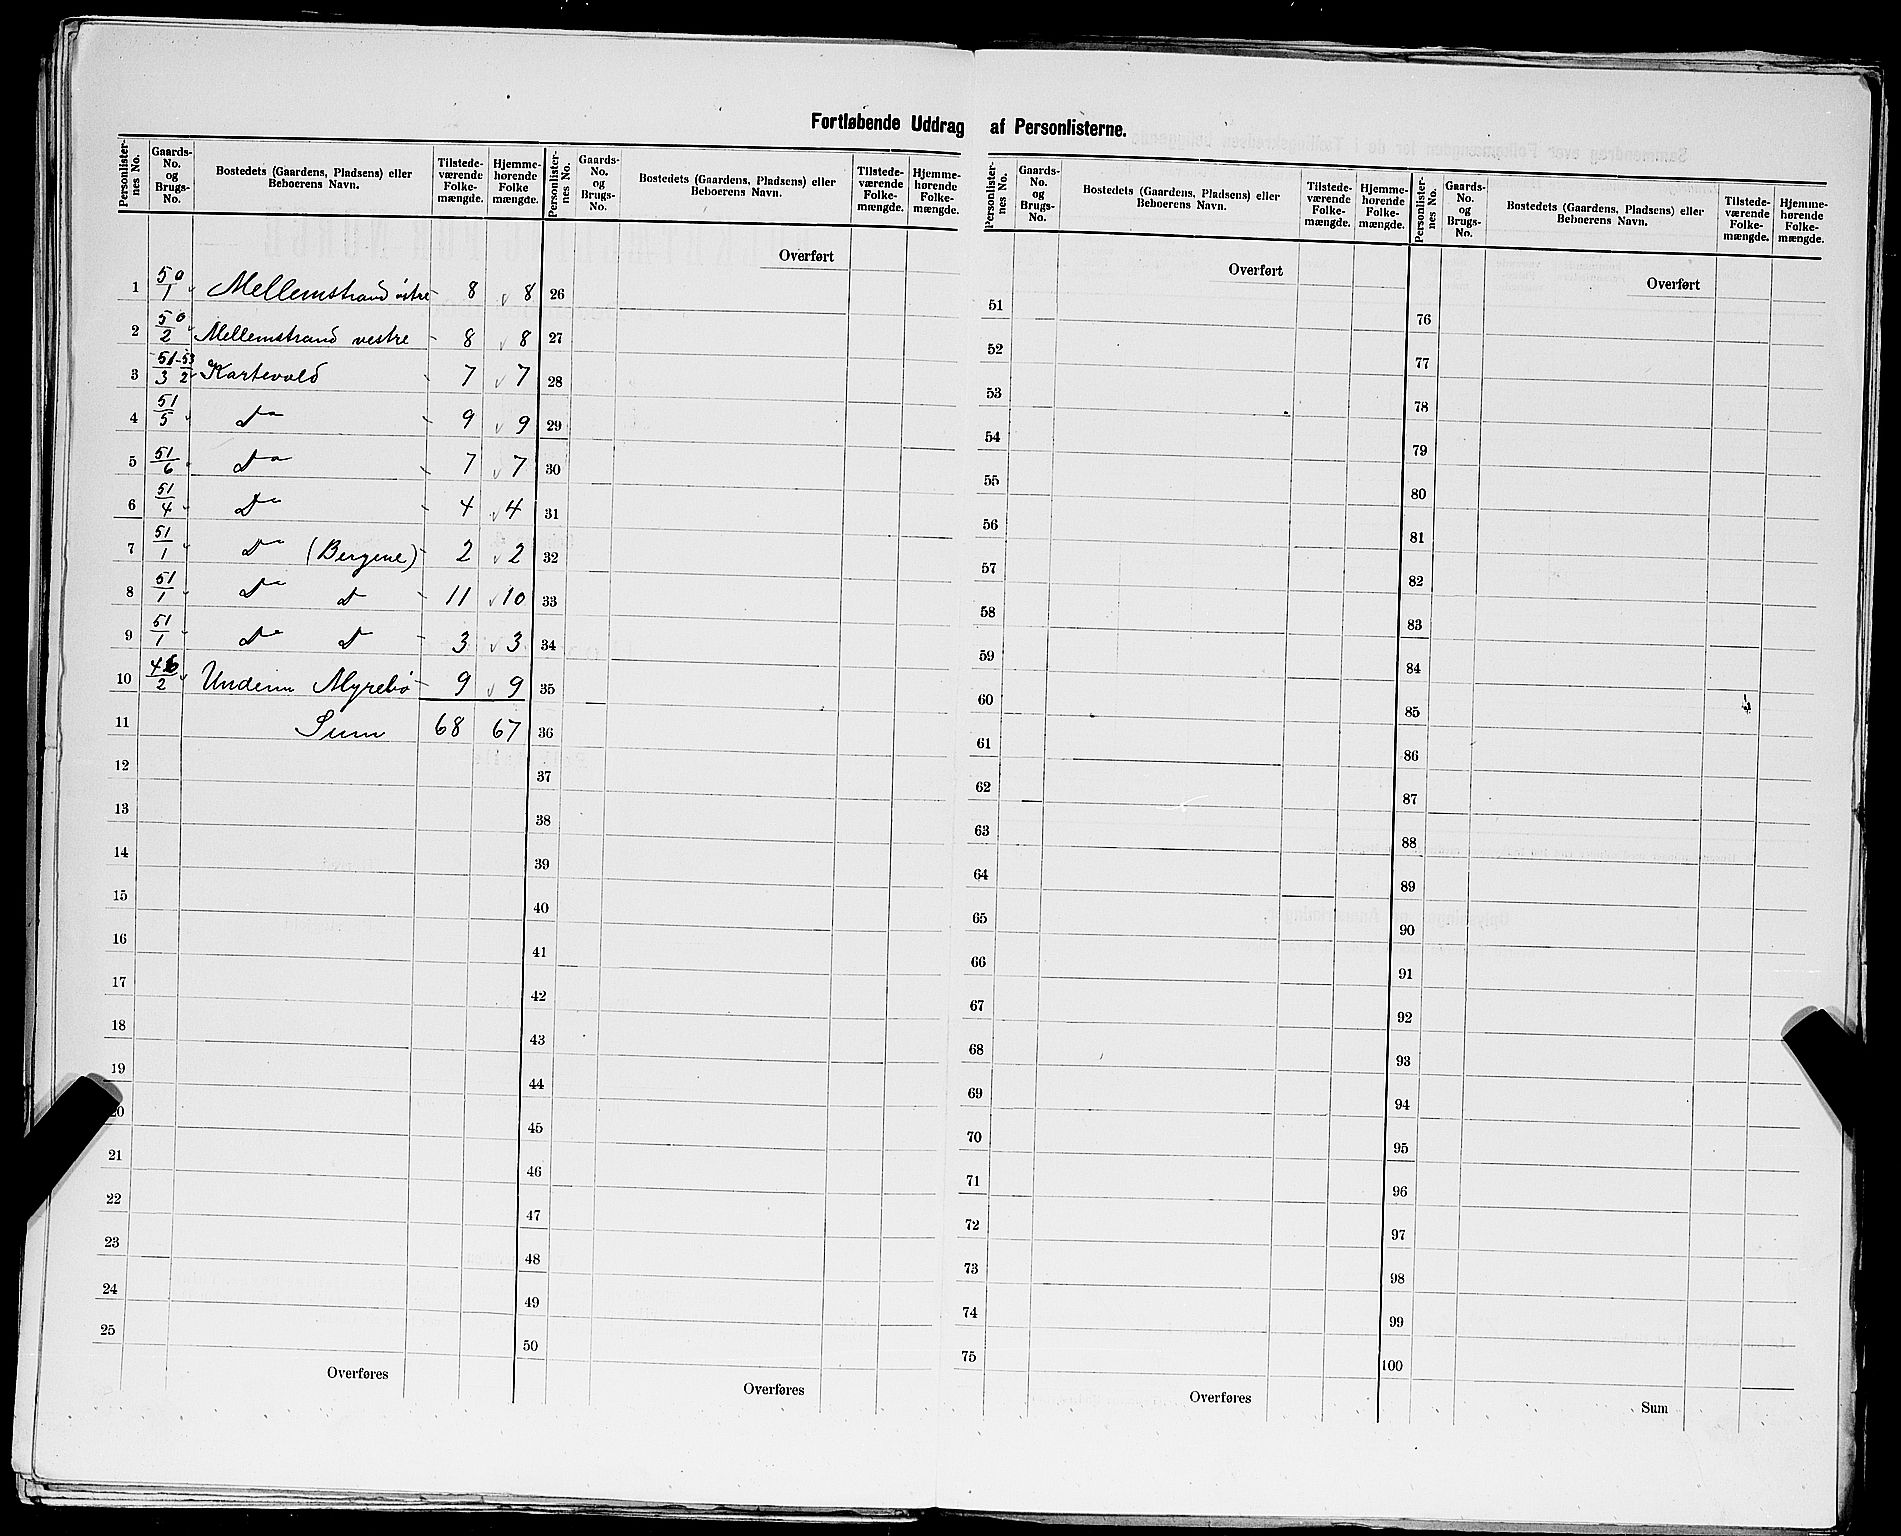 Fortløbende Uddrag af Personlisterne.
Personlisternes No. | Gaards-No. og Brugs-No. | Bostedets (Gaardens, Pladsens) eller Beboerens Navn. | Tilstedeværende Folkemængde. | Hjemmehørende Folkemængde.
1 50/1 Mellemstrand østre 8 8
2 50/2 Mellemstrand vestre 8 8
3 51/3 53/2 Kartevold 7 7
4 51/5 Do 9 9
5 51/6 Do 7 7
6 51/4 Do 4 4
7 51/1 Do (Bergene) 2 2
8 51/1 Do D 11 10
9 51/1 Do D 3 3
10 46/2 Myrebø 9 9
11 Sum 68 67
12
13
14
15
16
17
18
19
20
21
22
23
24
25
Overføres
Personlisternes No. | Gaards-No. og Brugs-No. | Bostedets (Gaardens, Pladsens) eller Beboerens Navn. | Tilstedeværende Folkemængde. | Hjemmehørende Folkemængde.
Overført
26
27
28
29
30
31
32
33
34
35
36
37
38
39
40
41
42
43
44
45
46
47
48
49
50
Overføres
Personlisternes No. | Gaards-No. og Brugs-No. | Bostedets (Gaardens, Pladsens) eller Beboerens Navn. | Tilstedeværende Folkemængde. | Hjemmehørende Folkemængde.
Overført
51
52
53
54
55
56
57
58
59
60
61
62
63
64
65
66
67
68
69
70
71
72
73
74
75
Overføres
Personlisternes No. | Gaards-No. og Brugs-No. | Bostedets (Gaardens, Pladsens) eller Beboerens Navn. | Tilstedeværende Folkemængde. | Hjemmehørende Folkemængde.
Overført
76
77
78
79
80
81
82
83
84
85
86
87
88
89
90
91
92
93
94
95
96
97
98
99
100
Sum